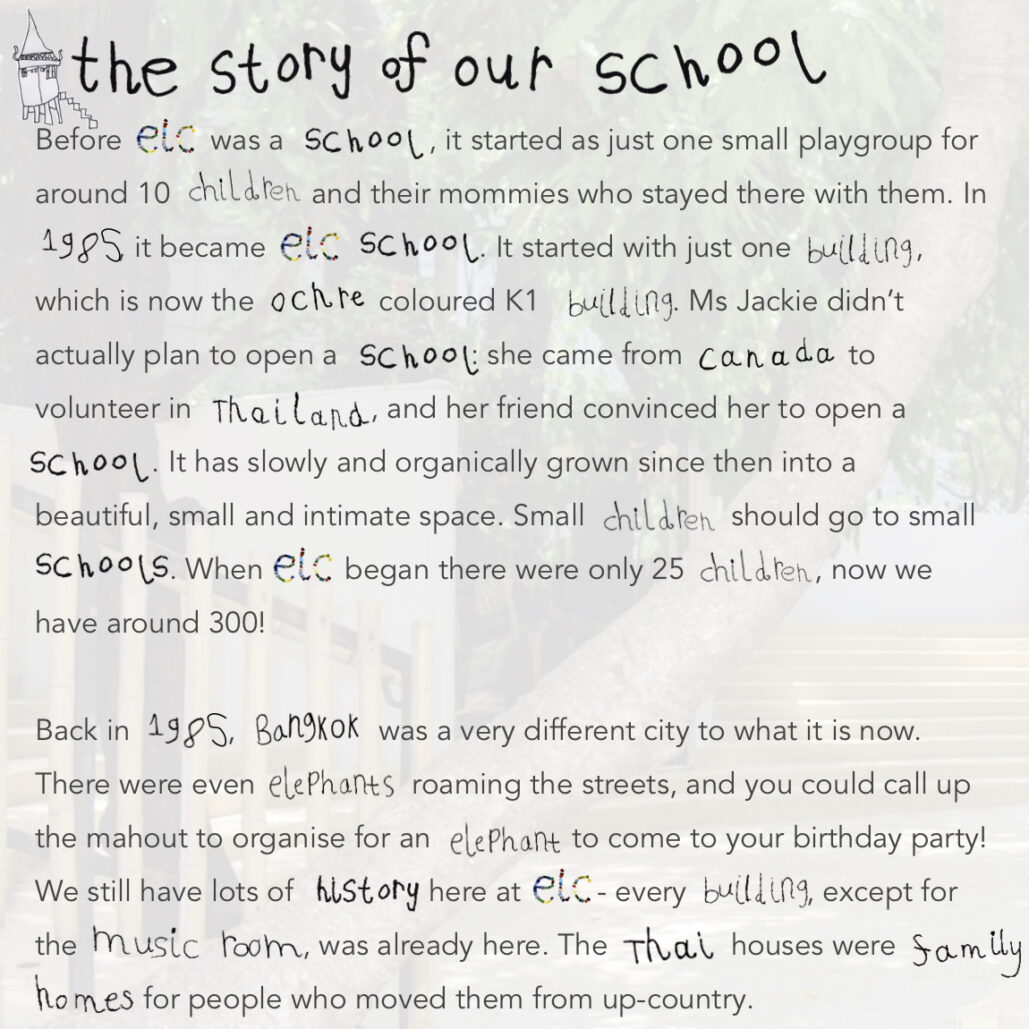 the story of our school
Before elc was a school, it started as just one small playgroup for
around 10 children and their mommies who stayed there with them. In
1985, it became elc school. It started with just one building,
which is now the ochre coloured K1 building. Ms Jackie didn't
actually plan to open a school: she came from canada to
volunteer in Thailand, and her friend convinced her to open a
school. It has slowly and organically grown since then into a
beautiful, small and intimate space. Small children should go to small
schools. When elc began there were only 25 children, now we
have around 300!
Back in 1985, Bangkok was a very different city to what it is now.
There were even elephants roaming the streets, and you could call up
the mahout to organise for an elephant to come to your birthday party!
We still have lots of history here at elc - every building, except for
the music room, was already here. The Thai houses were family
homes for people who moved them from up-country.